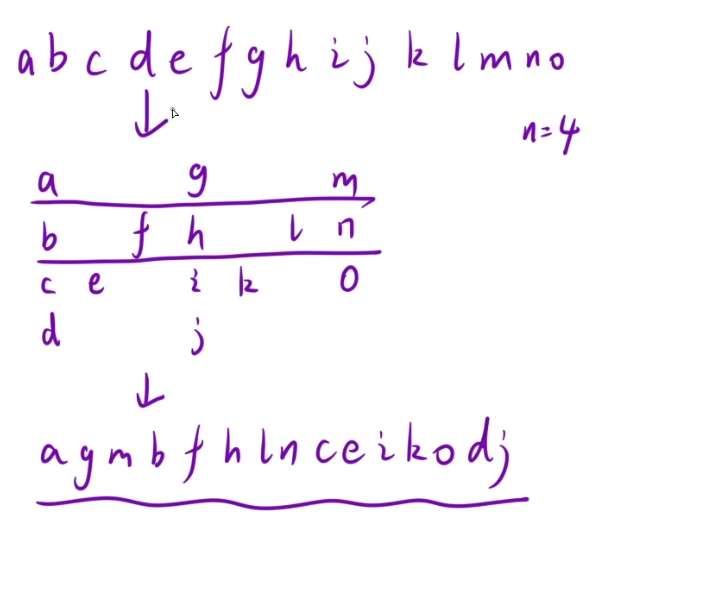 a b c d e f g h i j k l m n o
n=4
a g m
b f h l n
c e i k o
d j
a g m b f h l n c e i k o d j